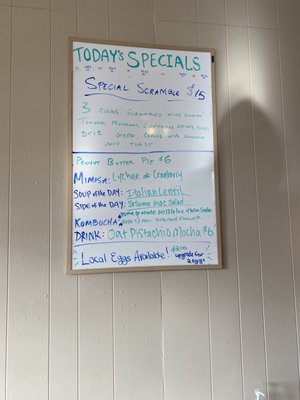 TODAY'S SPECIALS
SPECIAL SCRAMBLE $15
3 EGGS SCRAMBLED WITH
TOMATO, MUSHROOM,
BRIE CHEESE, SERVED WITH
AND TOAST
PEANUT BUTTER PIE $6
MIMOSA: Lychee or Cranberry
SOUP of the DAY: Italian Lentil
SIDE of the DAY: Sesame Mac Salad
KOMBUCHA:
DRINK: Oat Pistachio Mocha $6
Local Eggs Available!
upgrade for
2 eggs